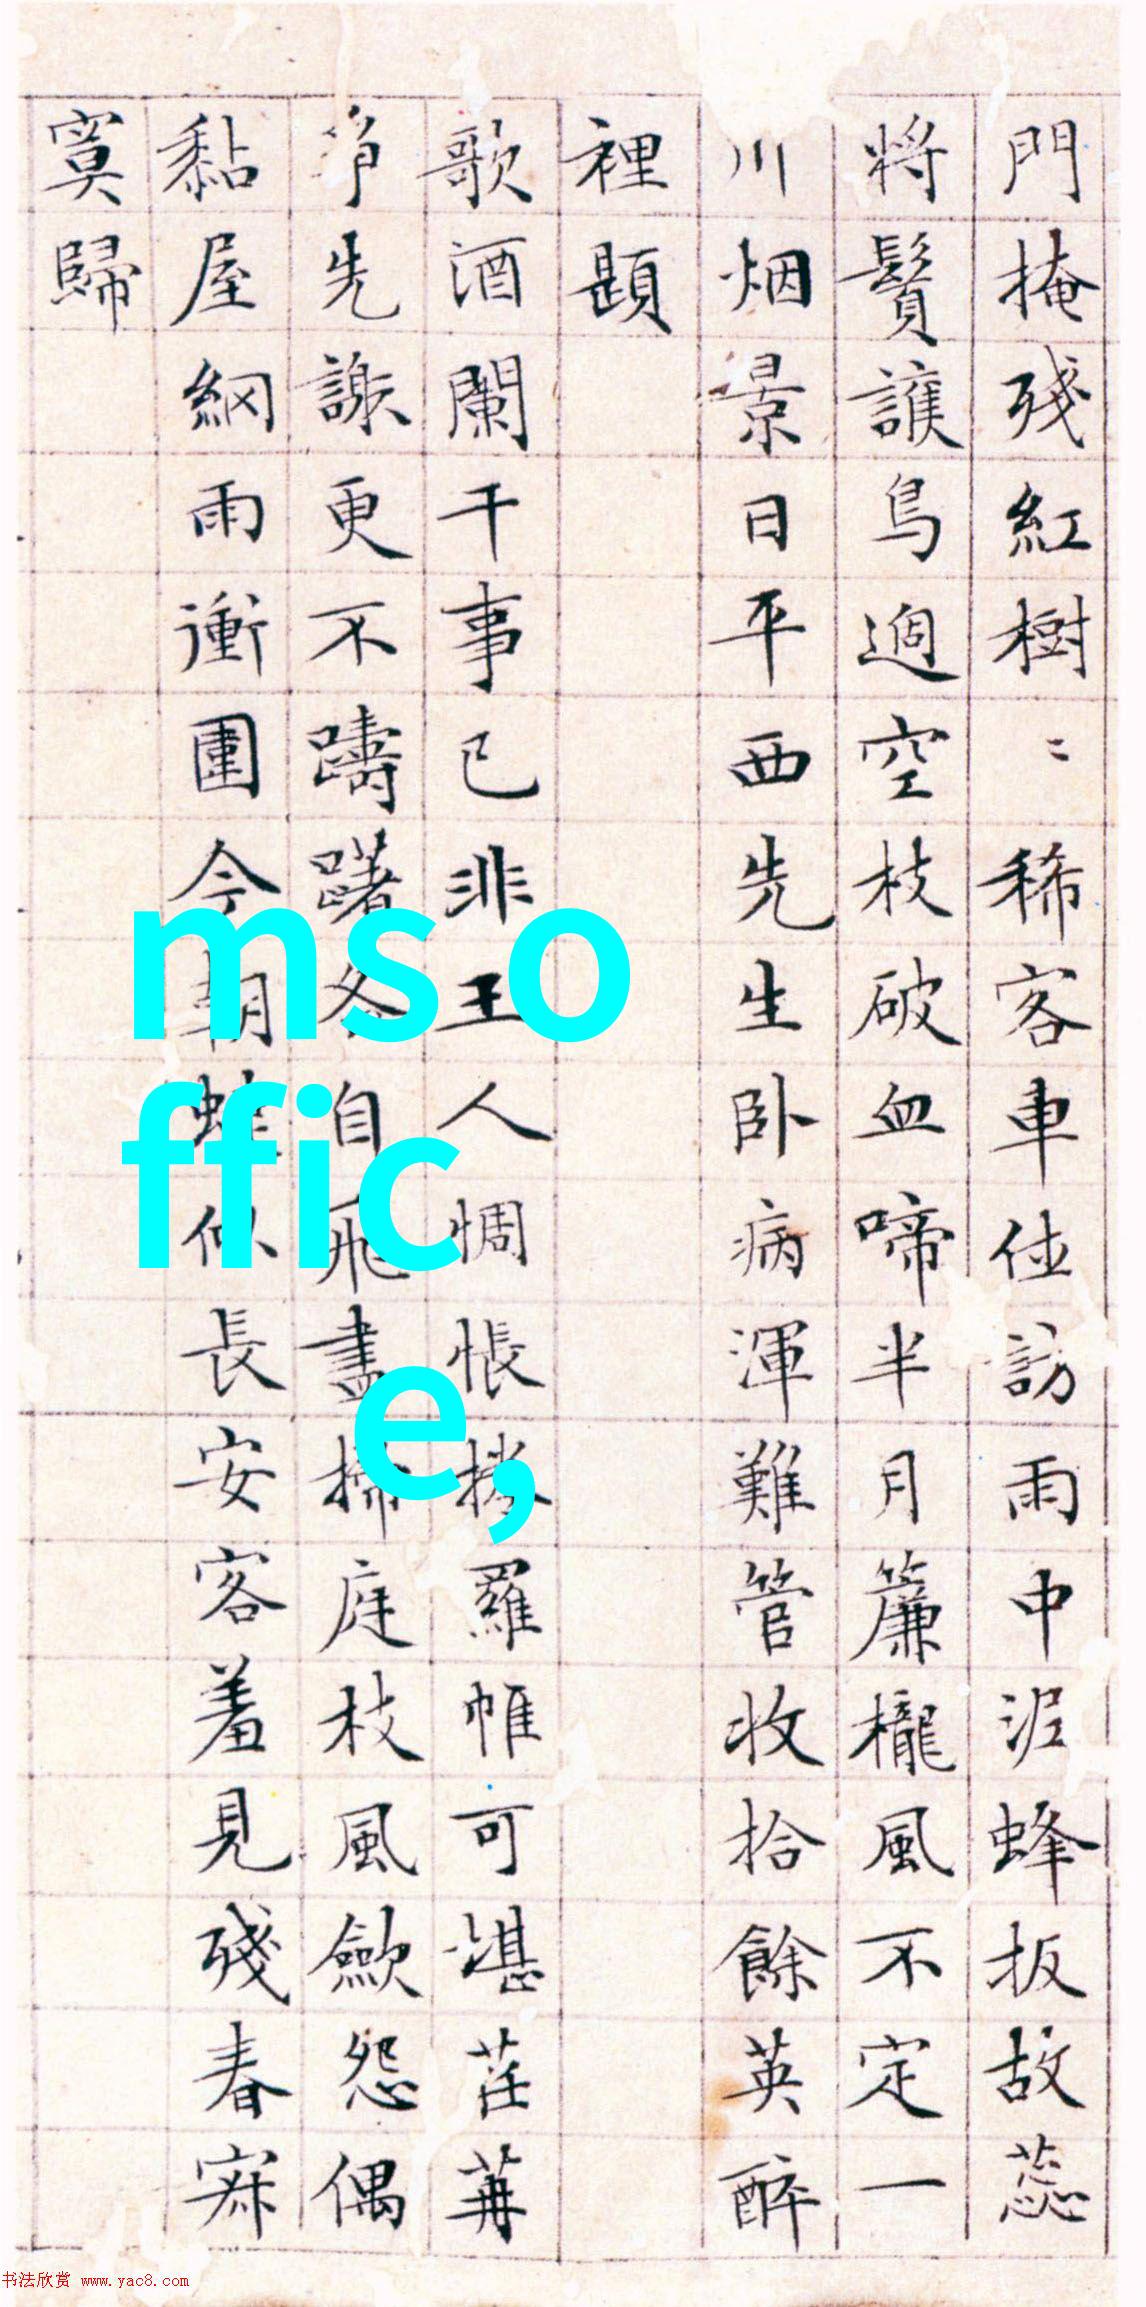 門掩殘紅樹〻稀客車位訪雨中泥蜂扳故蕊
將鬢護鳥過空枝破血啼半月簾櫳風不定一
川烟景日平西先生卧病渾難管收拾餘英醉
裡題
歌酒闌干事已非王人惆悵捲羅帷可堪茬苒
爭先謝更不躊躇各自飛盡掃庭枝風歛怨偶
黏屋網雨衝圍今朝蛙似長安客羞見殘春寂
寞歸
ms o
ffic
e,
书法欣赏 www.yac8.com